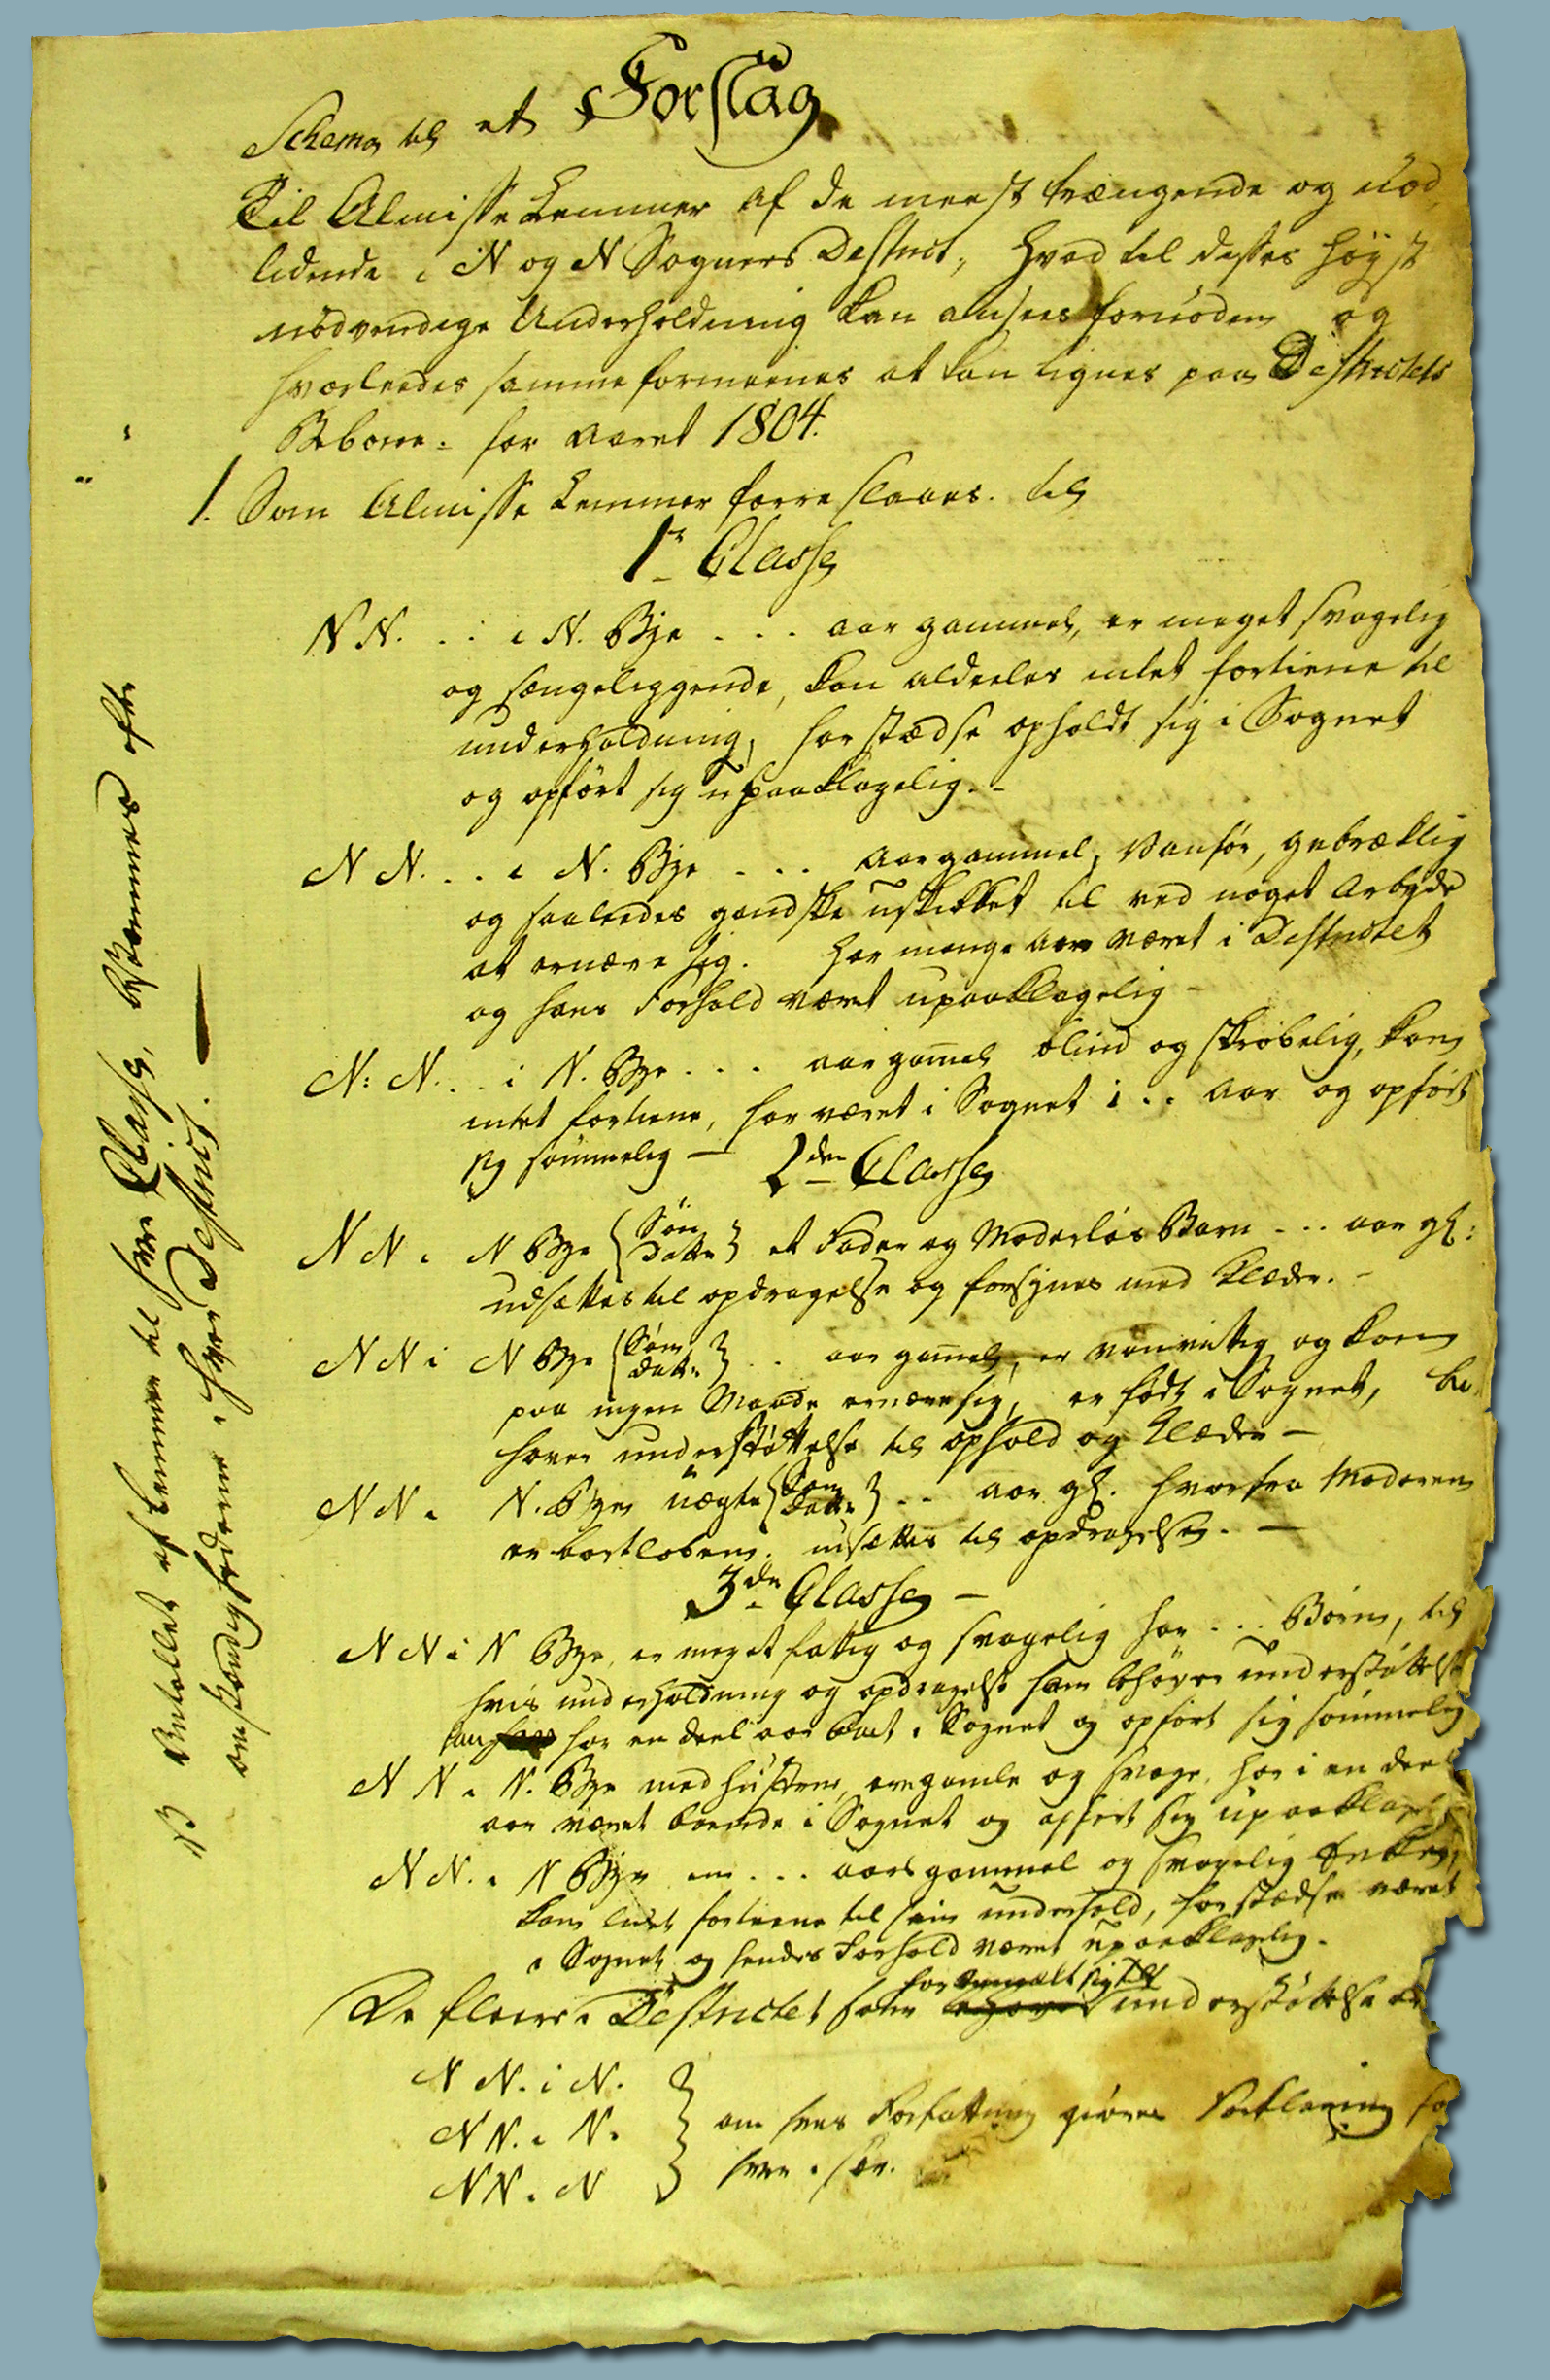 Schema til et Forslag
Til Almisse Lemmer af de meest trængende og nød
lidende i N og N Sogners Destrict, hvad til disses høyst
nødvendige Underholdning kan ansees fornøden og
hvorledes samme formeenes at kan lignes paa Destrictets
Beboere for Aaret 1804.
1. Som Almisse Lemmer foreslaaes til
1te Classe
NN. . . i N. Bye . . . aar gammel, er meget svagelig
og sængeliggende, kan aldeeles intet fortiene til
underholdning, har stædse opholdt sig i Sognet
og opført sig upaaklagelig. -
N N. . . i N. Bye . . . aar gammel, Vanfør, gebræklig
og saaledes gandske uskikket til ved noget Arbeyde
at ernære sig. har mange Aar været i Destrictet
og hans Forhold været upaaklagelig -
N: N. . . i N. Bye . . . aar gamel blind og skrøbelig, kan
intet fortiene, har været i Sognet i . . Aar og opført
sig sømmelig —
2den Classe
N N i N Bye { Søn Datter } et Fader og Moderløs Barn . . . aar gl:
udsættes til opdragelse og forsynes med Klæder. -
N N i N Bye { Søn Datter } . . aar gamel, er vanvittig og kan
paa ingen Maade ernære sig, er født i Sognet, be
høver understøttelse til ophold og Klæder —
N N i N. Bye uægte { Søn Datter } . . aar gl. hvorfra Moderen
er bortløben. udsættes til opdragelse. —
3die Classe —
N N i N Bye, er meget fattig og svagelig har . . . Børn, til
hvis underholdning og opdragelse ham behøver understøttelse
han har en deel aar boet i Sognet og opført sig sømmelig
N N i N. Bye med hustrue, ere gamle og svage, har i en deel
aar været boende i Sognet og opført sig upaaklage
N N. i N Bye en . . . aars gammel og svagelig Enke,
kan lidet fortiene til sin underhold, har stædse været
i Sognet og hendes Forhold været upaaklagelig.
har anmældt sig til
De fleere i Destrictet som behøver understøttelse er
N N. i N.
N N. i N. } om hvis Forfatning giøres Forklaring for
N N. i N hver i sær.
NB Antallet af Lemmer til hver Classe, bestemmes efter
omstændighederne i hver Destrict. —